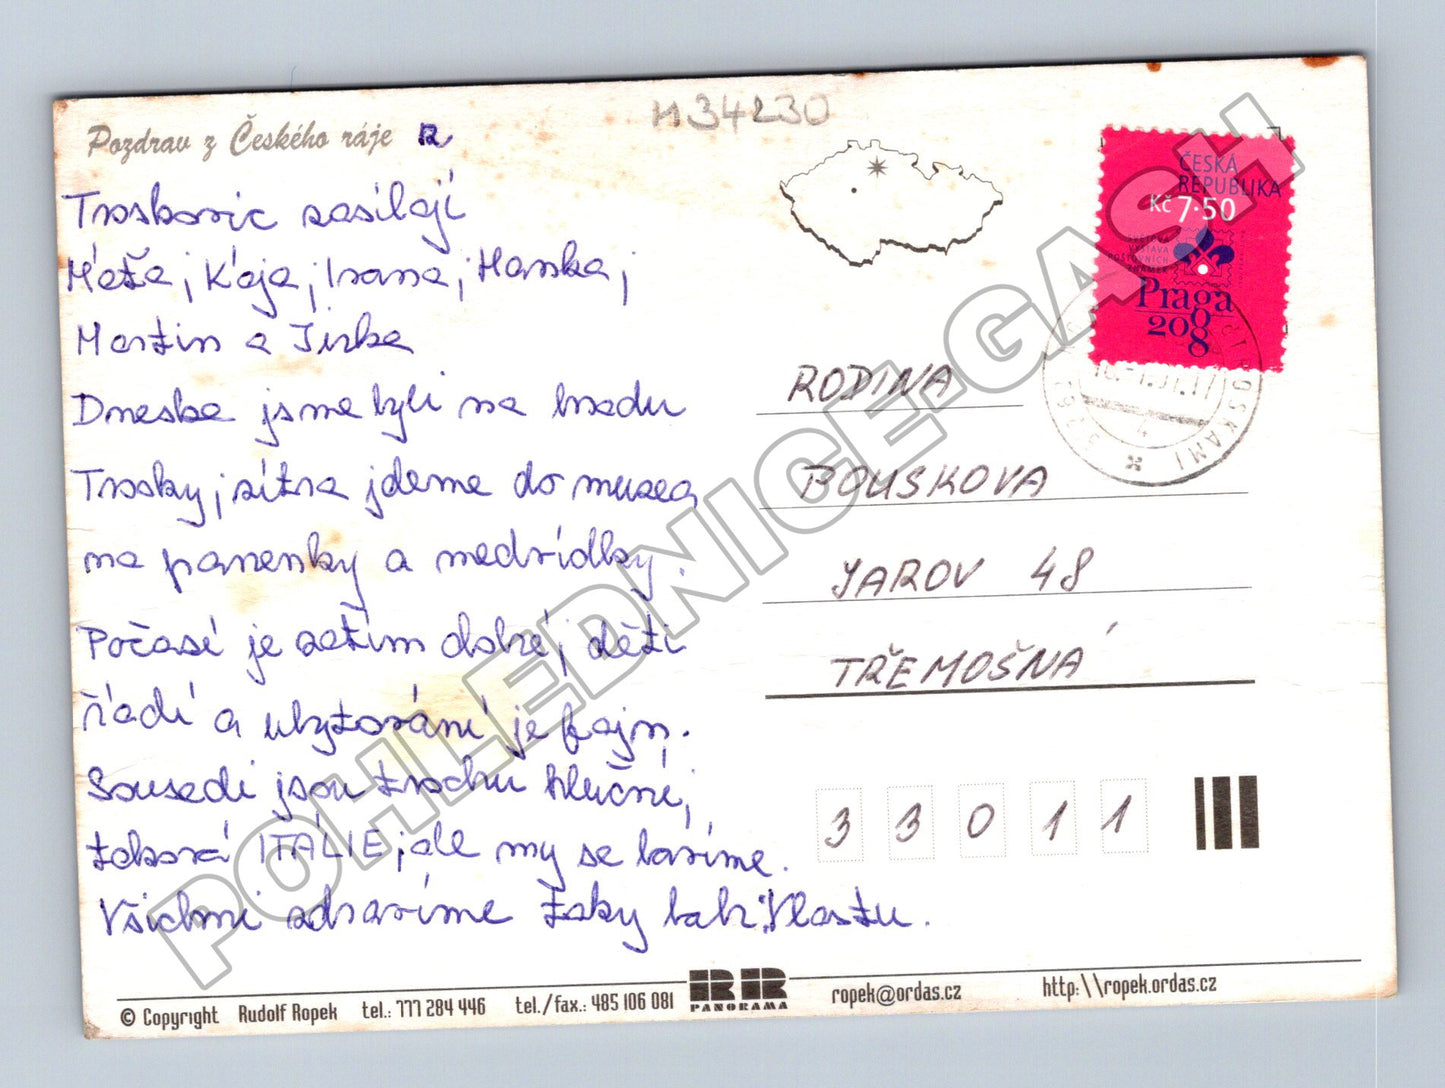 Pozdrav z Českého ráje z
Troskovic zasílají
Máťa, Kája, Ivana, Hanka,
Martin a Jirka
Dneska jsme byli na hradu
Trosky, zítra jdeme do muzea
na panenky a medvídky.
Počasí je zatím dobré, děti
řádí a ubytování je fajn.
Sousedi jsou trochu hluční,
taková ITÁLIE, ale my se bavíme.
Všichni zdravíme taky bab. Vlastu.
M34230
ČESKÁ
REPUBLIKA
Kč 7·50
SVĚTOVÁ
VÝSTAVA
POŠTOVNÍCH
ZNÁMEK
Praga
2008
RODINA
POUSKOVA
JAROV 48
TŘEMOŠNÁ
33011
© Copyright Rudolf Ropek tel.: 777 284 446 tel./fax.: 485 106 081
RR
PANORAMA
ropek@ordas.cz http:\\ropek.ordas.cz
POHLEDNICE-GASH